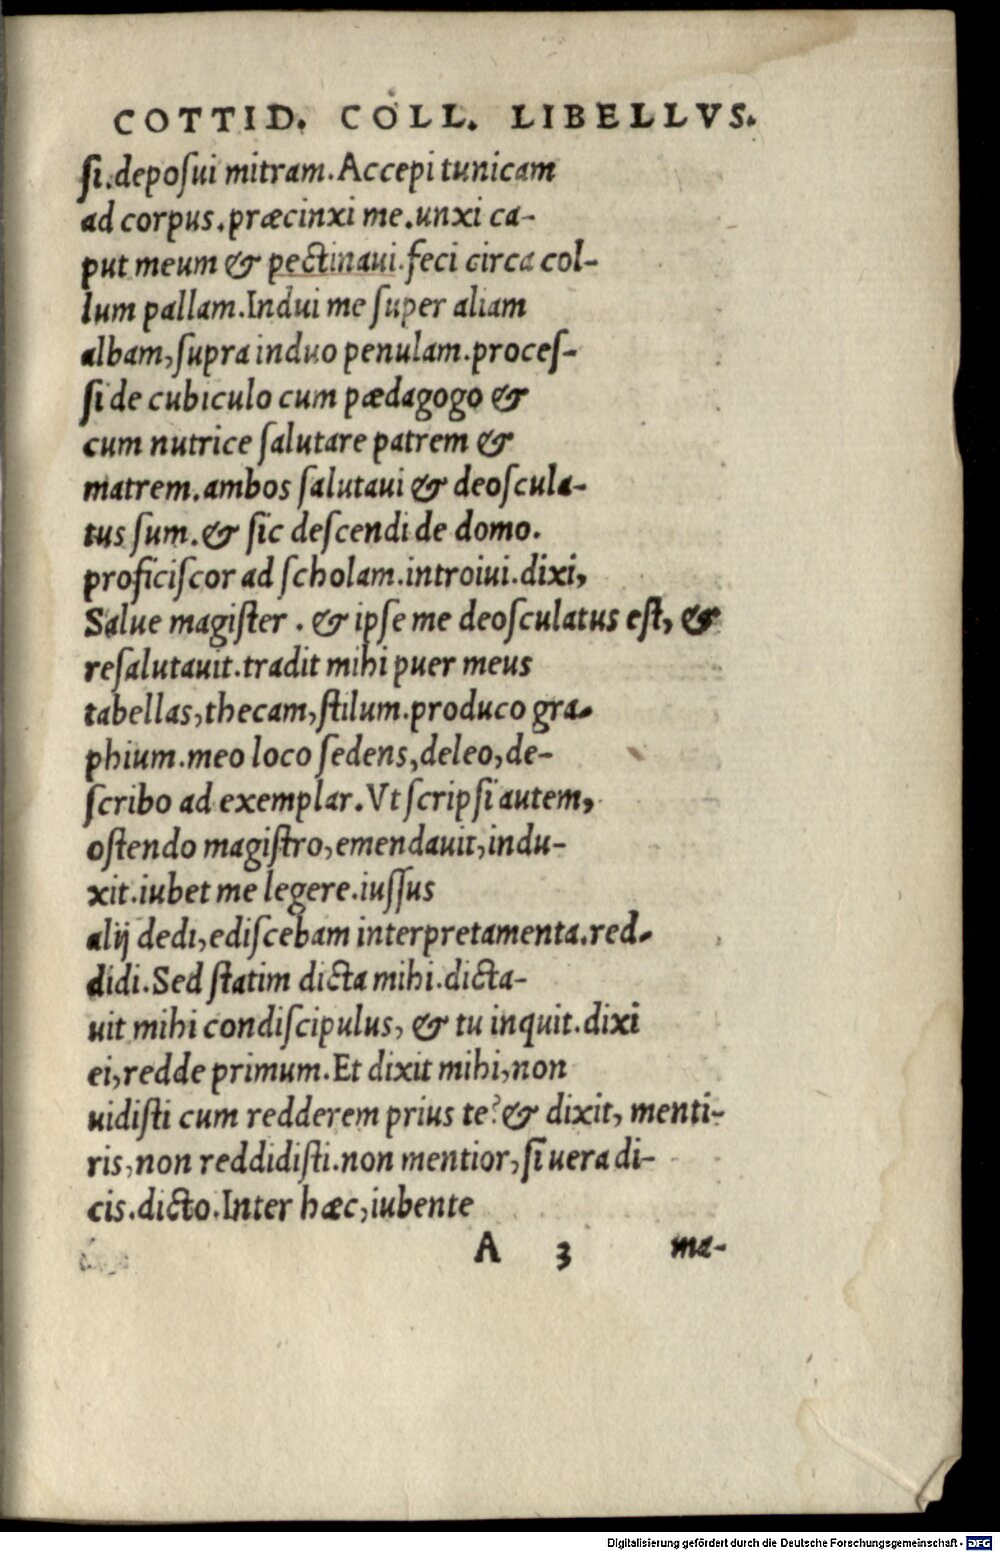 COTTID. COLL. LIBELLVS.
ſi.depoſui mitram.Accepi tunicam
ad corpus.præcinxi me.unxi ca-
put meum & pectinaui.feci circa col-
lum pallam.Indui me ſuper aliam
albam,ſupra induo penulam.proceſ-
ſi de cubiculo cum pædagogo &
cum nutrice ſalutare patrem &
matrem.ambos ſalutaui & deoſcula-
tus ſum.& ſic deſcendi de domo.
proficiſcor ad ſcholam.introiui.dixi,
Salue magiſter . & ipſe me deoſculatus eſt, &
reſalutauit.tradit mihi puer meus
tabellas,thecam,ſtilum.produco gra-
phium.meo loco ſedens,deleo,de-
ſcribo ad exemplar.Vt ſcripſi autem,
oſtendo magiſtro,emendauit,indu-
xit.iubet me legere.iuſſus
alij dedi,ediſcebam interpretamenta.red-
didi.Sed ſtatim dicta mihi.dicta-
uit mihi condiſcipulus, & tu inquit.dixi
ei,redde primum.Et dixit mihi,non
uidiſti cum redderem prius te?& dixit, menti-
ris,non reddidiſti.non mentior,ſi uera di-
cis.dicto.Inter hæc,iubente
A 3 ma-
Digitalisierung gefördert durch die Deutsche Forschungsgemeinschaft - DFG